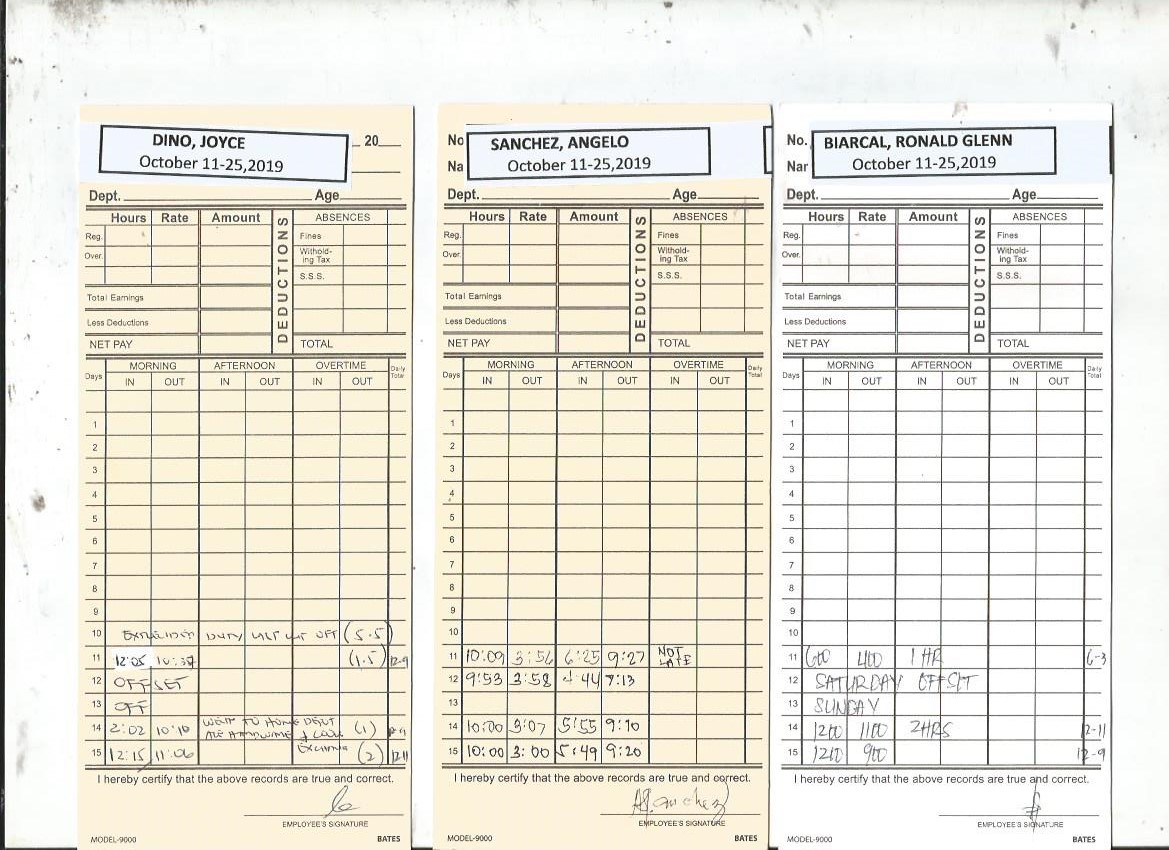 DINO, JOYCE
October 11-25,2019
20
Dept. Age
Hours Rate Amount DEDUCTIONS ABSENCES
Reg. Fines
Over. Withold-
ing Tax
S.S.S.
Total Earnings
Less Deductions
NET PAY TOTAL
Days MORNING AFTERNOON OVERTIME Daily Total
IN OUT IN OUT IN OUT
1
2
3
4
5
6
7
8
9
10 EXTENDED DUTY LAST CUT OFF (5.5)
11 12:05 10:37 (1.5) 12-9
12 OFFSET
13 OFF
14 2:02 10:10 WENT TO HOME DEPOT (1)
15 12:15 11:06 (2) 12-11
I hereby certify that the above records are true and correct.
EMPLOYEE'S SIGNATURE
MODEL-9000 BATES
No
Na
SANCHEZ, ANGELO
October 11-25,2019
Dept. Age
Hours Rate Amount DEDUCTIONS ABSENCES
Reg. Fines
Over. Withold-
ing Tax
S.S.S.
Total Earnings
Less Deductions
NET PAY TOTAL
Days MORNING AFTERNOON OVERTIME Daily Total
IN OUT IN OUT IN OUT
1
2
3
4
5
6
7
8
9
10
11 10:09 3:56 6:25 9:27 NOT LATE
12 9:53 3:58 4:44 7:13
13
14 10:00 3:07 5:55 9:10
15 10:00 3:00 5:49 9:20
I hereby certify that the above records are true and correct.
ASanchez
EMPLOYEE'S SIGNATURE
MODEL-9000 BATES
No.
Nar
BIARCAL, RONALD GLENN
October 11-25,2019
Dept. Age
Hours Rate Amount DEDUCTIONS ABSENCES
Reg. Fines
Over. Withold-
ing Tax
S.S.S.
Total Earnings
Less Deductions
NET PAY TOTAL
Days MORNING AFTERNOON OVERTIME Daily Total
IN OUT IN OUT IN OUT
1
2
3
4
5
6
7
8
9
10
11 600 400 1 HR 6-3
12 SATURDAY OFFSET
13 SUNDAY
14 1200 1100 2HRS 12-11
15 1200 900 12-9
I hereby certify that the above records are true and correct.
EMPLOYEE'S SIGNATURE
MODEL-9000 BATES